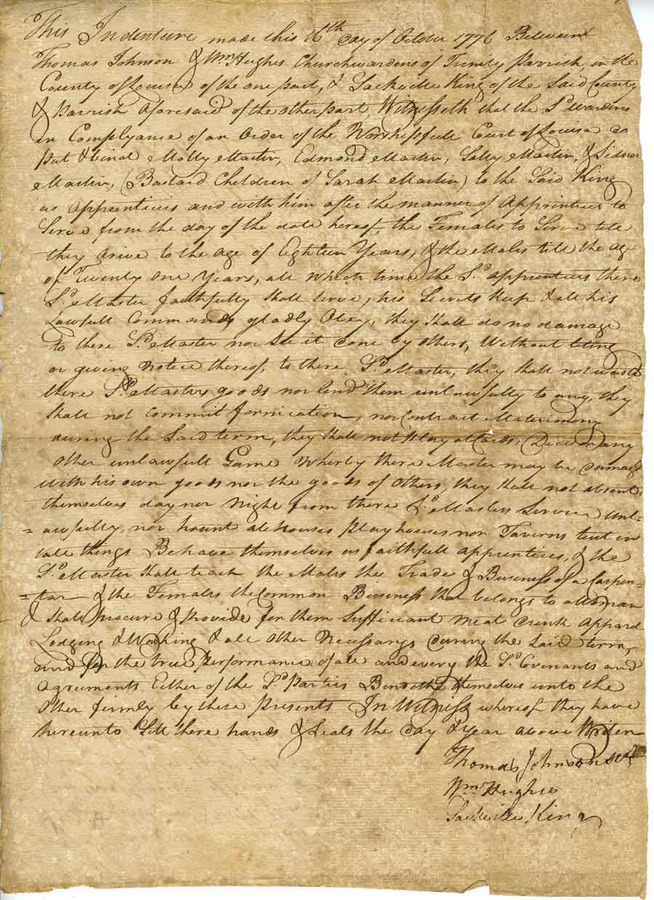 This Indenture made this 16th Day of October 1776 Between
Thomas Johnson & Wm Hughes Churchwardens of Trinity Parrish in the
County of Louisa of the one part, & Sackville King of the Said County
& Parrish aforesaid of the other part Witnesseth that the Sd Wardens
in Complyance of an Order of the Worshipfull Court of Louisa do
put & bind Molly Martin, Edmond Martin, Salley Martin, &
Martin, (Bastard Children of Sarah Martin) to the Said King
as Apprentices and with him after the manner of Apprentices to
Serve from the day of the date hereof, the Females to Serve till
they arive to the age of Eighteen Years, & the Males till the Age
of Twenty one Years, all which time the Sd apprentices there
Sd Master faithfully Shall Serve, his Secrets Keep & all his
Lawfull Commands gladly Obey, they Shall do no damage
to there Sd Master nor See it done by others, Without leting
or giving Notice thereof to there Sd Master, they Shall not waste
there Sd Masters goods nor lend them unlawfully to any, they
Shall not commit fornication, nor Contract Matrimony
during the Said term, they Shall not Play at Cards, Dice or any
Other unlawfull Game Whereby there Master may be damag
with his own goods nor the goods of Others, they Shall not absent
themselves day nor Night from there Sd Masters Service Unl-
-awfully, nor haunt alehouses Playhouses nor Taverns but in
all things Behave themselves as faithfull apprentices, & the
Sd Master Shall teach the Males the Trade & Business of a Carpen-
-tar & the Females the Common Business that belongs to a Woman
& Shall Procure & Provide for them Sufficient Meat Drink Apparel
Lodging & Washing & all Other Necessarys during the Said term
and for the true Performance of all and every the Sd Covenants and
Agreements Either of the Sd Parties Bindeth themselves unto the
Other firmly by these Presents In Witness whereof they have
hereunto Sett there hands & Seals the day & year above Writen
Thomas Johnson Seal
Wm Hughes
Sackville King